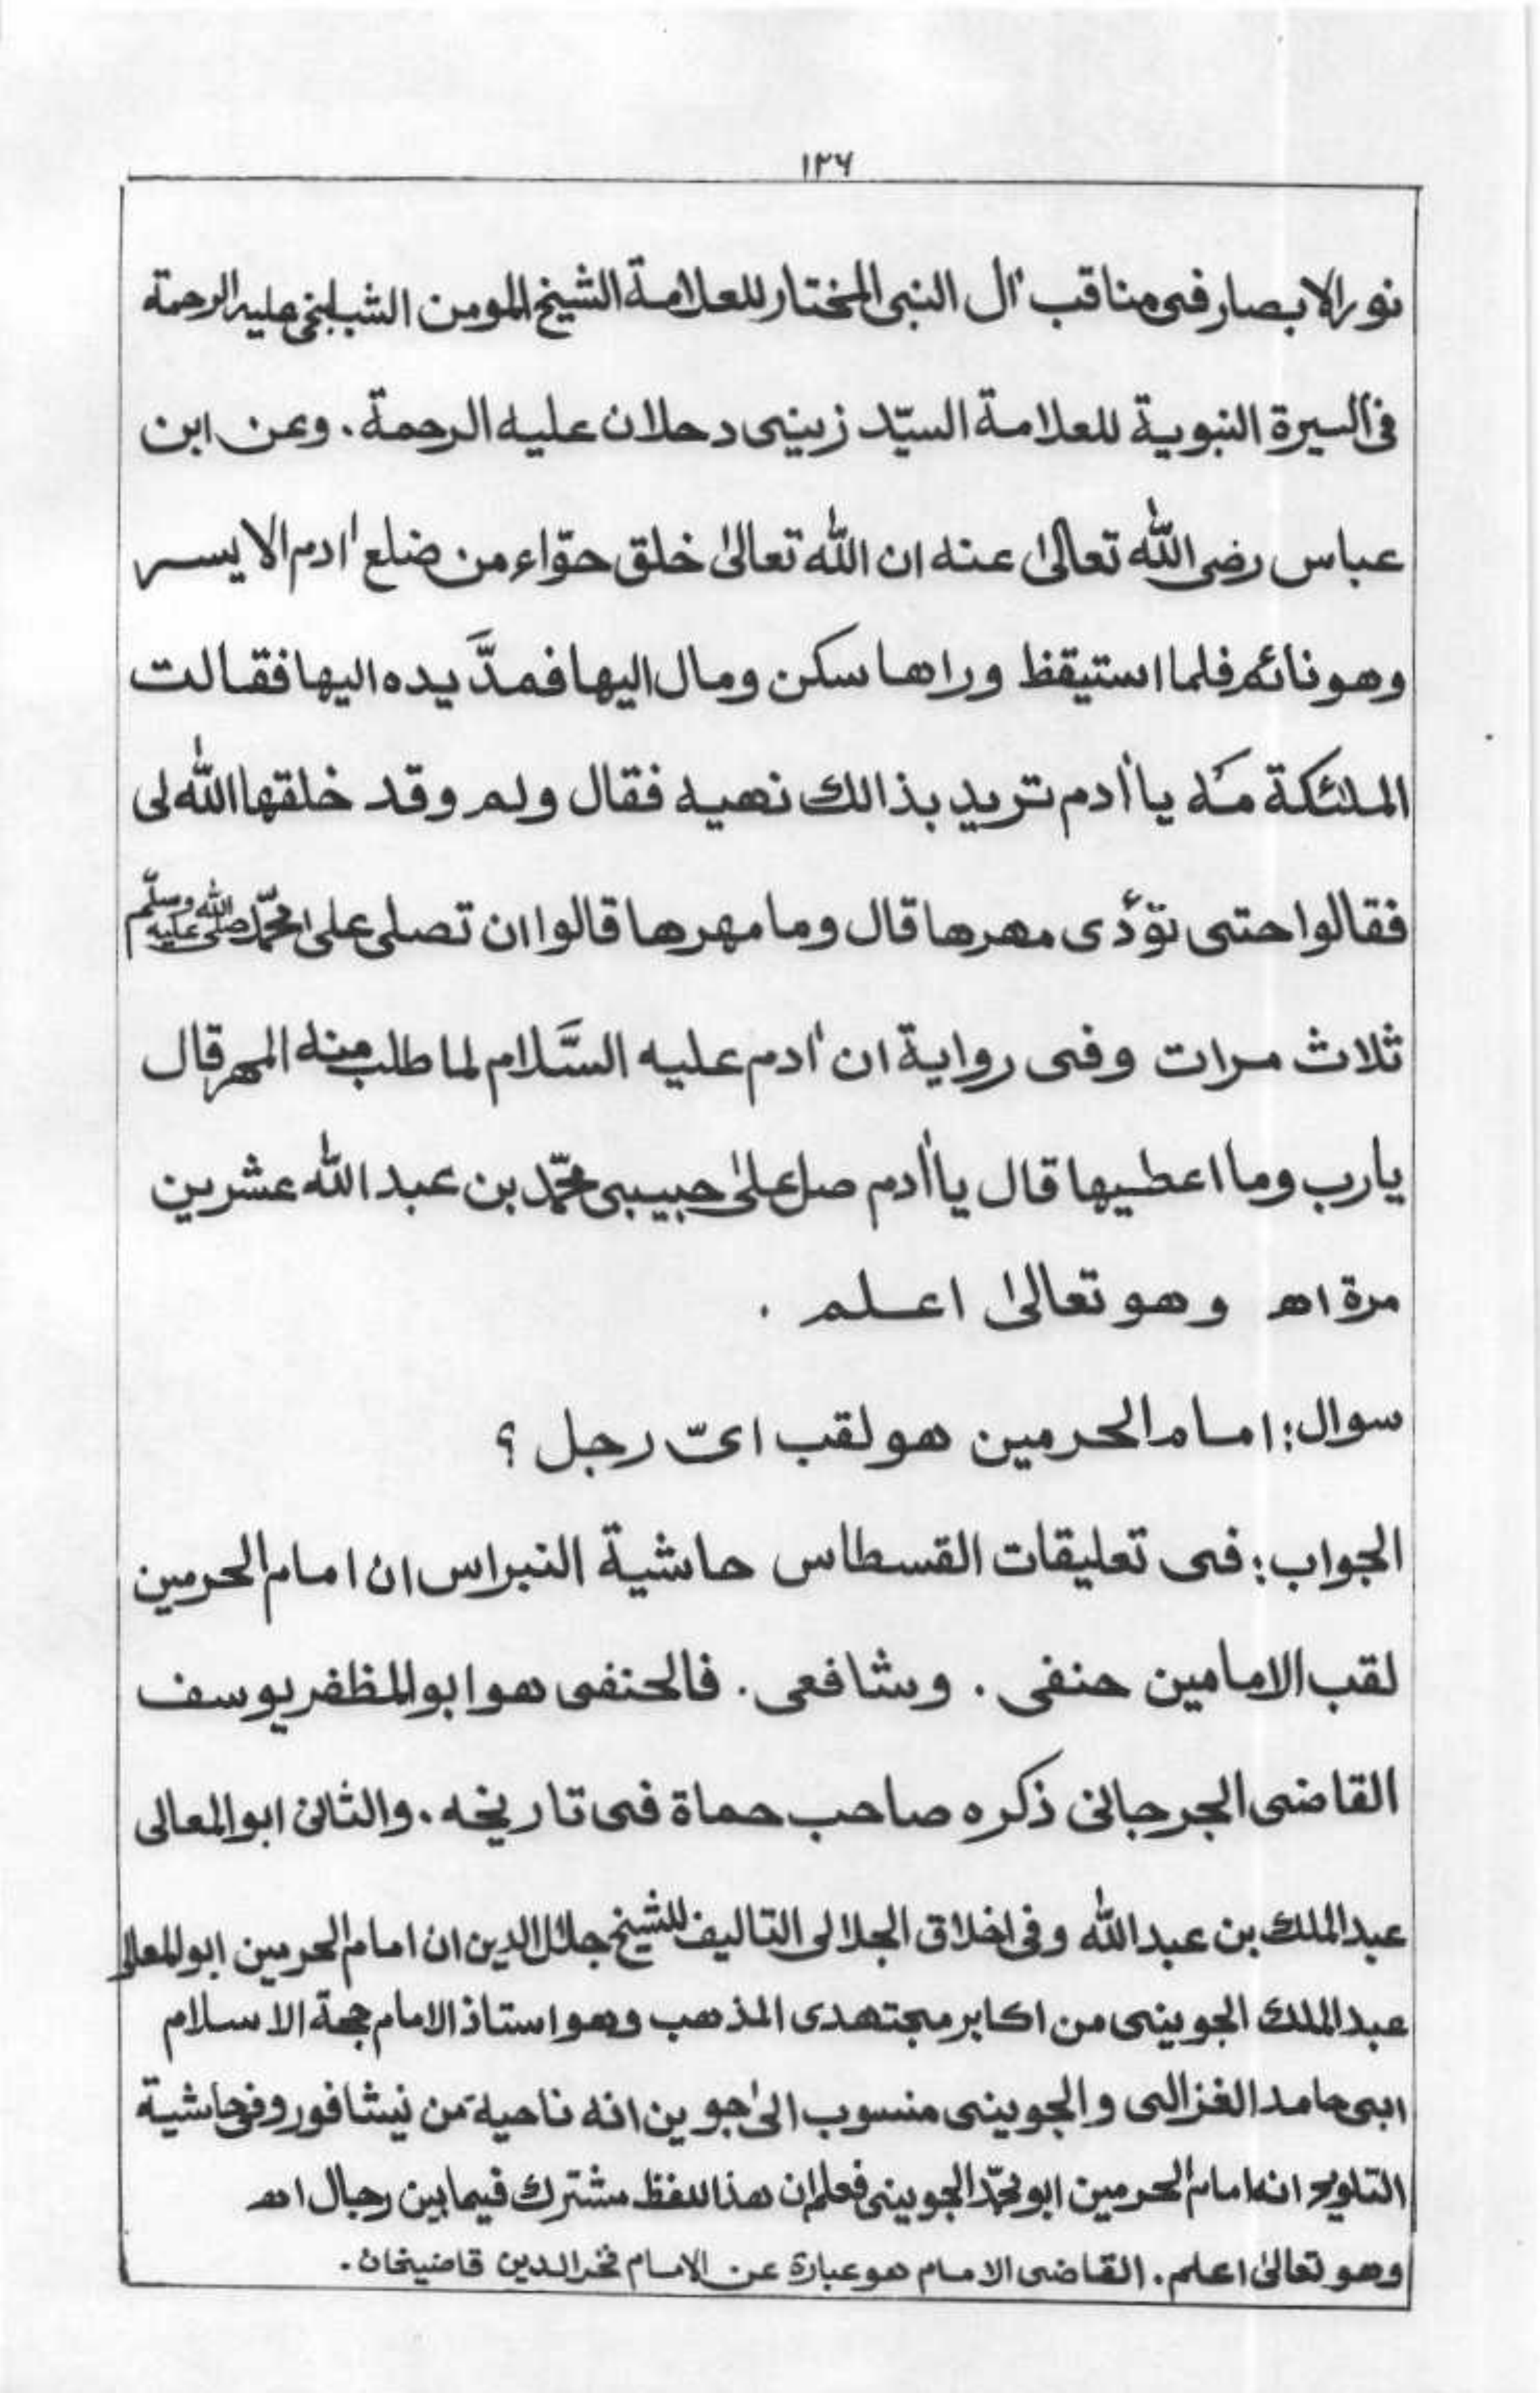 ١٢٦
نور الابصار فى مناقب اٰل النبى المختار للعلامة الشيخ المومن الشبلنجى عليه الرحمة
فى السيرة النبوية للعلامة السيّد زينى دحلان عليه الرحمة. وعن ابن
عباس رضى الله تعالىٰ عنه ان الله تعالىٰ خلق حوّاء من ضلع اٰدم الايسر
وهو نائم فلما استيقظ وراها سكن ومال اليها فمدَّ يده اليها فقالت
الملئكة مَه يا اٰدم تريد بذالك نهيه فقال ولم وقد خلقها الله لى
فقالوا حتى تؤدى مهرها قال وما مهرها قالوا ان تصلى على محمّد صلى الله عليه وسلّم
ثلاث مرات وفى رواية ان اٰدم عليه السَّلام لما طلب منه المهر قال
يارب وما اعطيها قال يا اٰدم صل علىٰ حبيبى محمّد بن عبد الله عشرين
مرة اھ وهو تعالىٰ اعلم .
سوال: امام الحرمين هو لقب اىّ رجل ؟
الجواب: فى تعليقات القسطاس حاشية النبراس ان امام الحرمين
لقب الامامين حنفى . وشافعى . فالحنفى هو ابو المظفر يوسف
القاضى الجرجانى ذكره صاحب حماة فى تاريخه . والثانى ابو المعالى
عبد الملك بن عبد الله وفى اخلاق الجلالى التاليف للشيخ جلال الدين ان امام الحرمين ابو المعالى
عبد الملك الجوينى من اكابر مجتهدى المذهب وهو استاذ الامام حجة الاسلام
ابى حامد الغزالى والجوينى منسوب الىٰ جوين انه ناحية من نيشافور وفى حاشية
التلويح انه امام الحرمين ابو محمّد الجوينى فعلم ان هذا اللفظ مشترك فيما بين رجال اھ
وهو تعالىٰ اعلم . القاضى الامام هو عبارة عن الامام فخر الدين قاضيخان .